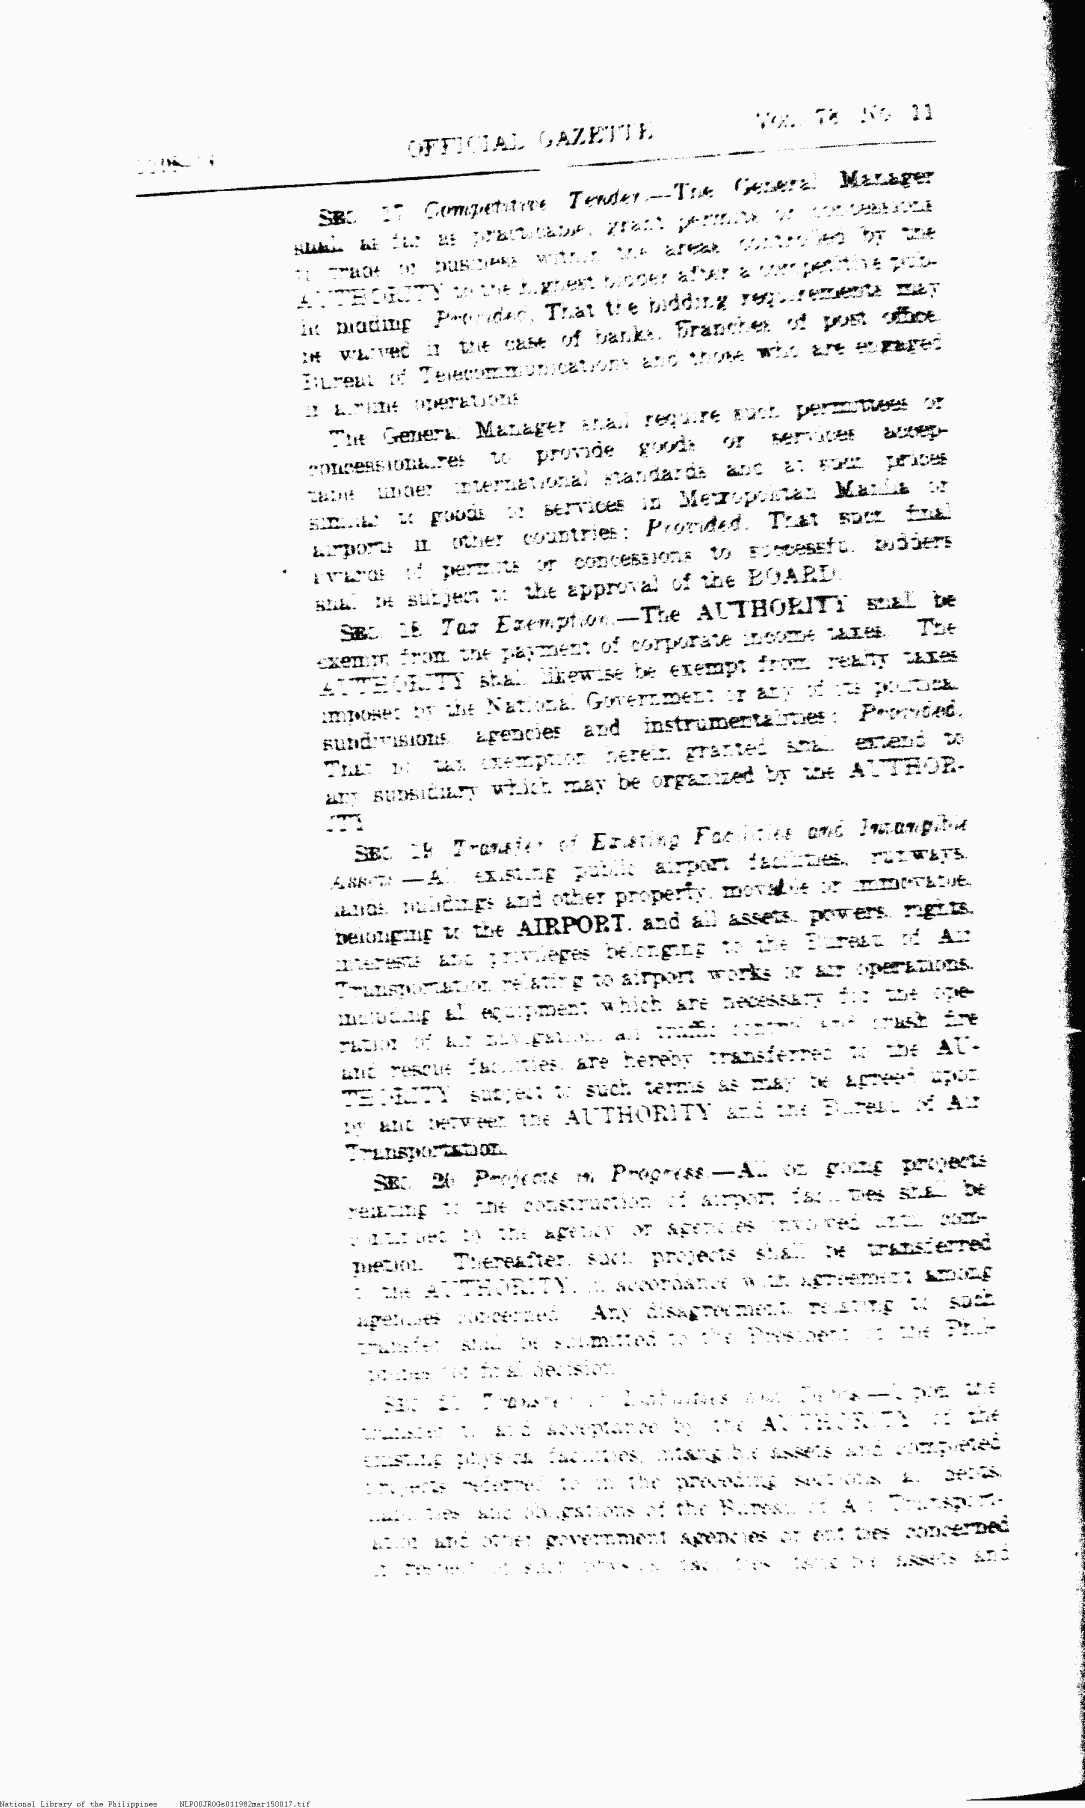 OFFICIAL GAZETTE Vol. 78 No. 11
SEC. 17 Competitive Tender.—The General Manager
shall as far as practicable, grant permits or concessions
to trade or business within the areas controlled by the
AUTHORITY to the highest bidder after a competitive pub-
lic bidding Provided, That the bidding requirements may
be waived in the case of banks, Branches of post office,
Bureau of Telecommunications and those who are engaged
in airline operations
The General Manager shall require such permittees or
concessionaires to provide goods or services accep-
table under international standards and at such prices
similar to goods or services in Metropolitan Manila or
airports in other countries; Provided, That such final
awards of permits or concessions to successful bidders
shall be subject to the approval of the BOARD.
SEC. 18 Tax Exemption.—The AUTHORITY shall be
exempt from the payment of corporate income taxes. The
AUTHORITY shall likewise be exempt from realty taxes
imposed by the National Government or any of its political
subdivisions, agencies and instrumentalities; Provided,
That no tax exemption herein granted shall extend to
any subsidiary which may be organized by the AUTHOR-
ITY
SEC. 19 Transfer of Existing Facilities and Intangible
Assets.—All existing public airport facilities, runways,
lands, buildings and other property, movable or immovable,
belonging to the AIRPORT, and all assets, powers, rights,
interests and privileges belonging to the Bureau of Air
Transportation relating to airport works or air operations,
including all equipment which are necessary for the ope-
ration of air navigation, air traffic control and crash fire
and rescue facilities, are hereby transferred to the AU-
THORITY subject to such terms as may be agreed upon
by and between the AUTHORITY and the Bureau of Air
Transportation.
SEC. 20 Projects in Progress.—All on going projects
relating to the construction of airport facilities shall be
continued by the agency or agencies involved until com-
pletion. Thereafter, such projects shall be transferred
to the AUTHORITY, in accordance with agreement among
agencies concerned. Any disagreement, relating to such
transfer shall be submitted to the President of the Phil-
ippines for final decision
SEC. 21 Transfer of Liabilities and Debts.—Upon the
transfer to and acceptance by the AUTHORITY of the
existing physical facilities, intangible assets and completed
projects referred to in the preceding sections, all debts,
liabilities and obligations of the Bureau of Air Transport-
ation and other government agencies or entities concerned
in respect of such physical facilities, tangible assets and
National Library of the Philippines NLP00JR0Gs011982mar150017.tif